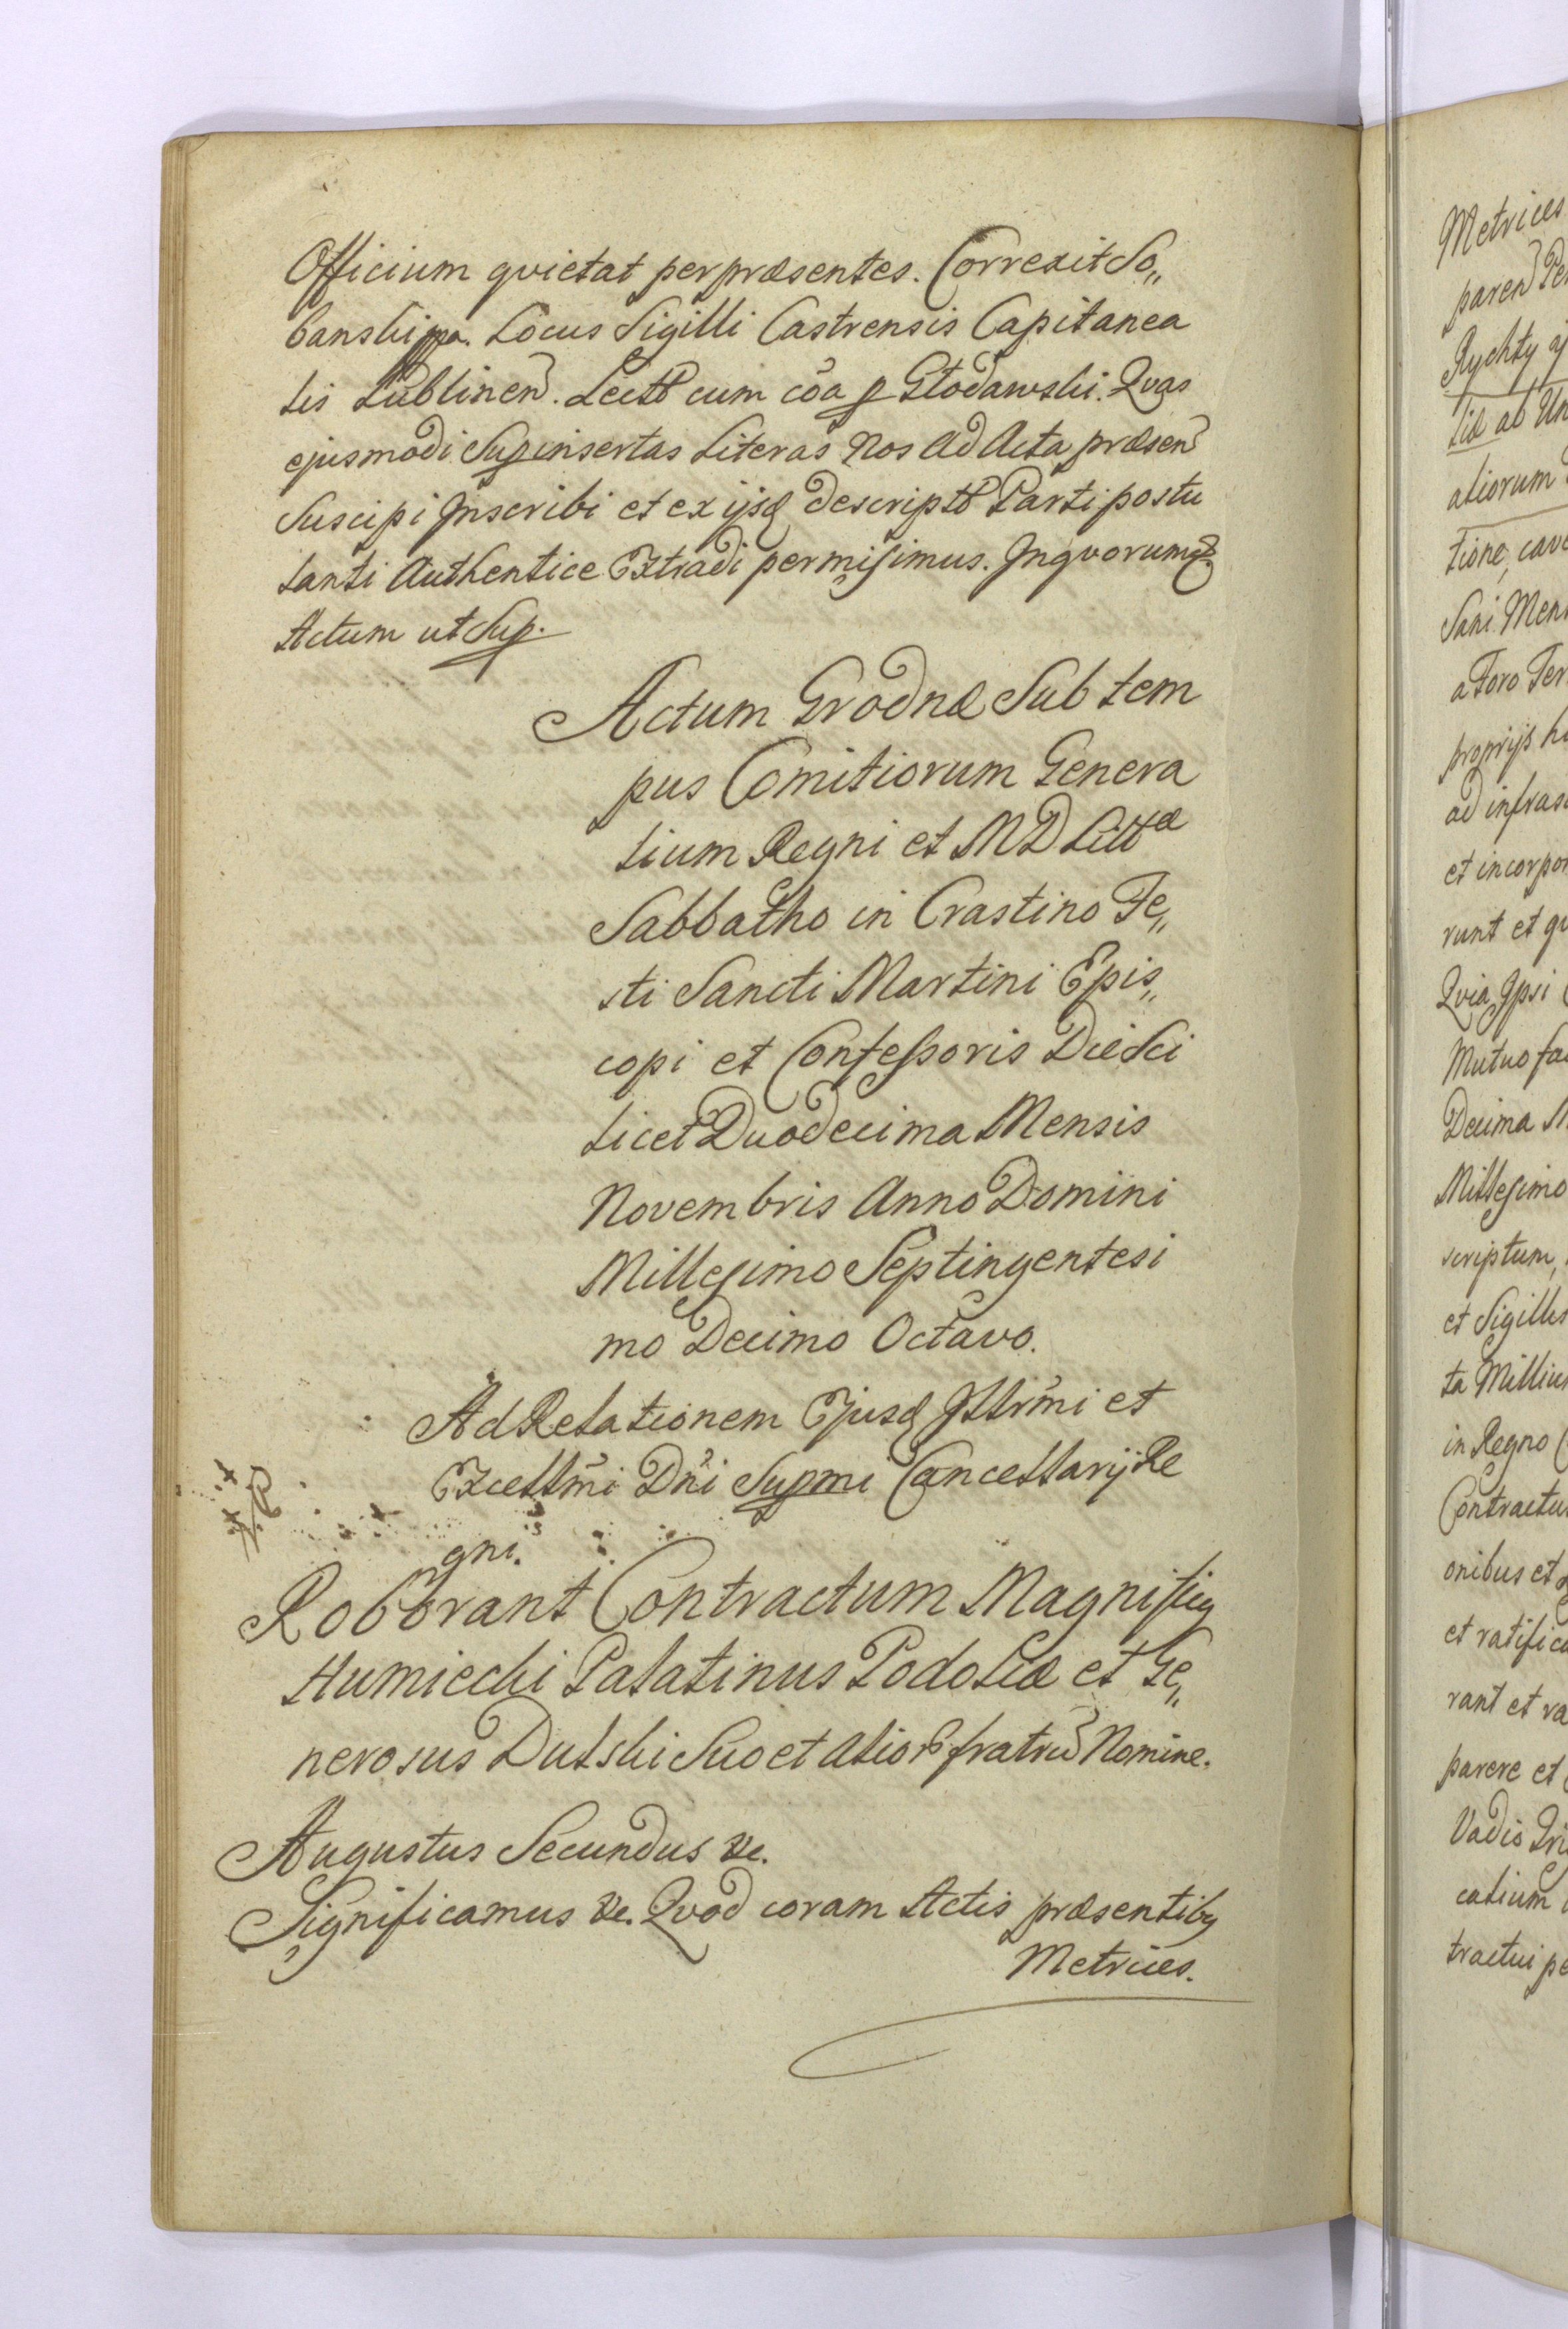 Officium qvietat per præsentes. Correxit So„
banski mpa. Locus Sigilli Castrensis Capitanea
lis Lublinen. Lectũ cum cõa p Głodawski. Qvas
ejusmodi Supinsertas Literas Nos Ad Acta præsen
Suscipi Jnscribi et ex ijsq descriptũ Parti postu
lanti Authentice Extradi permisimus. Jnqvorumq
Actum ut Sup.
Actum Grodnæ Sub tem
pus Comitiorum Genera
lium Regni et M D Littæ
Sabbatho in Crastino Fe„
sti Sancti Martini Epis„
copi et Confessoris Die Sci
licet Duodecima Mensis
Novembris Anno Domini
Millesimo Septingentesi
mo Decimo Octavo.
Ad Relationem Ejusq Jllrmi et
Excellmi Dni Supmi Cancellarij Re
gni.
Roborant Contractum Magnificy
Humiecki Palatinus Podoliæ et Ge„
nerosus Dulski Suo et Alior fratrũ Nomine.
Augustus Secundus &c.
Significamus &c. Qvod coram Actis præsentiby
Metrices.
Metrices
paren
Rychty
liæ ab
aliorum
tione, cav
Sani Men
a Foro Ter
proprijs
ad infras
et incorpor
runt et
Qvia Jpsi
Mutuo
Decima
Millesimo
scriptum,
et Sigilles
ta Milliu
in Regno
Contractu
onibus et
et ratifica
rant et ra
parere et
Vadio Tri
calium
tractui pe